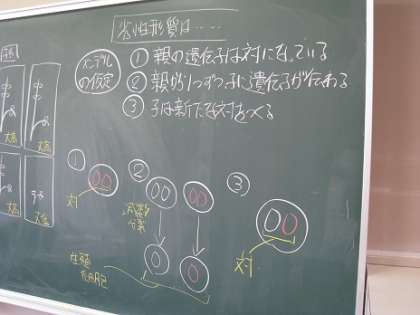 劣性形質は……
メンデルの仮定
① 親の遺伝子は対になっている
② 親から1つずつ子に遺伝子が伝わる
③ 子は新たな対をつくる
①
対
②
減数
分裂
生殖
細胞
③
対